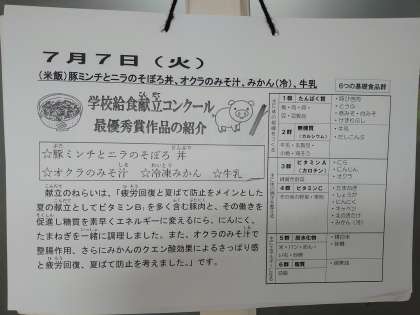 7月7日（火）
（米飯）豚ミンチとニラのそぼろ丼、オクラのみそ汁、みかん（冷）、牛乳
学校給食献立コンクール
最優秀賞作品の紹介
☆豚ミンチとニラのそぼろ 丼
☆オクラのみそ汁 ☆冷凍みかん ☆牛乳
献立のねらいは、「疲労回復と夏ばて防止をメインとした
夏の献立としてビタミンB₁を多く含む豚肉と、その働きを
促進し糖質を素早くエネルギーに変えるにら、にんにく、
たまねぎを一緒に調理しました。また、オクラのみそ汁で
整腸作用、さらにみかんのクエン酸効果によるさっぱり感
と疲労回復、夏ばて防止を考えました。」です。
6つの基礎食品群
1群 たんぱく質
2群 無機質
（カルシウム）
・牛乳
3群 ビタミンA
（カロテン）
・にら
・にんじん
・オクラ
4群 ビタミンC
・たまねぎ
・しょうが
・にんにく
・キャベツ
・えのきたけ
・みかん（冷）
5群 炭水化物
6群 脂質